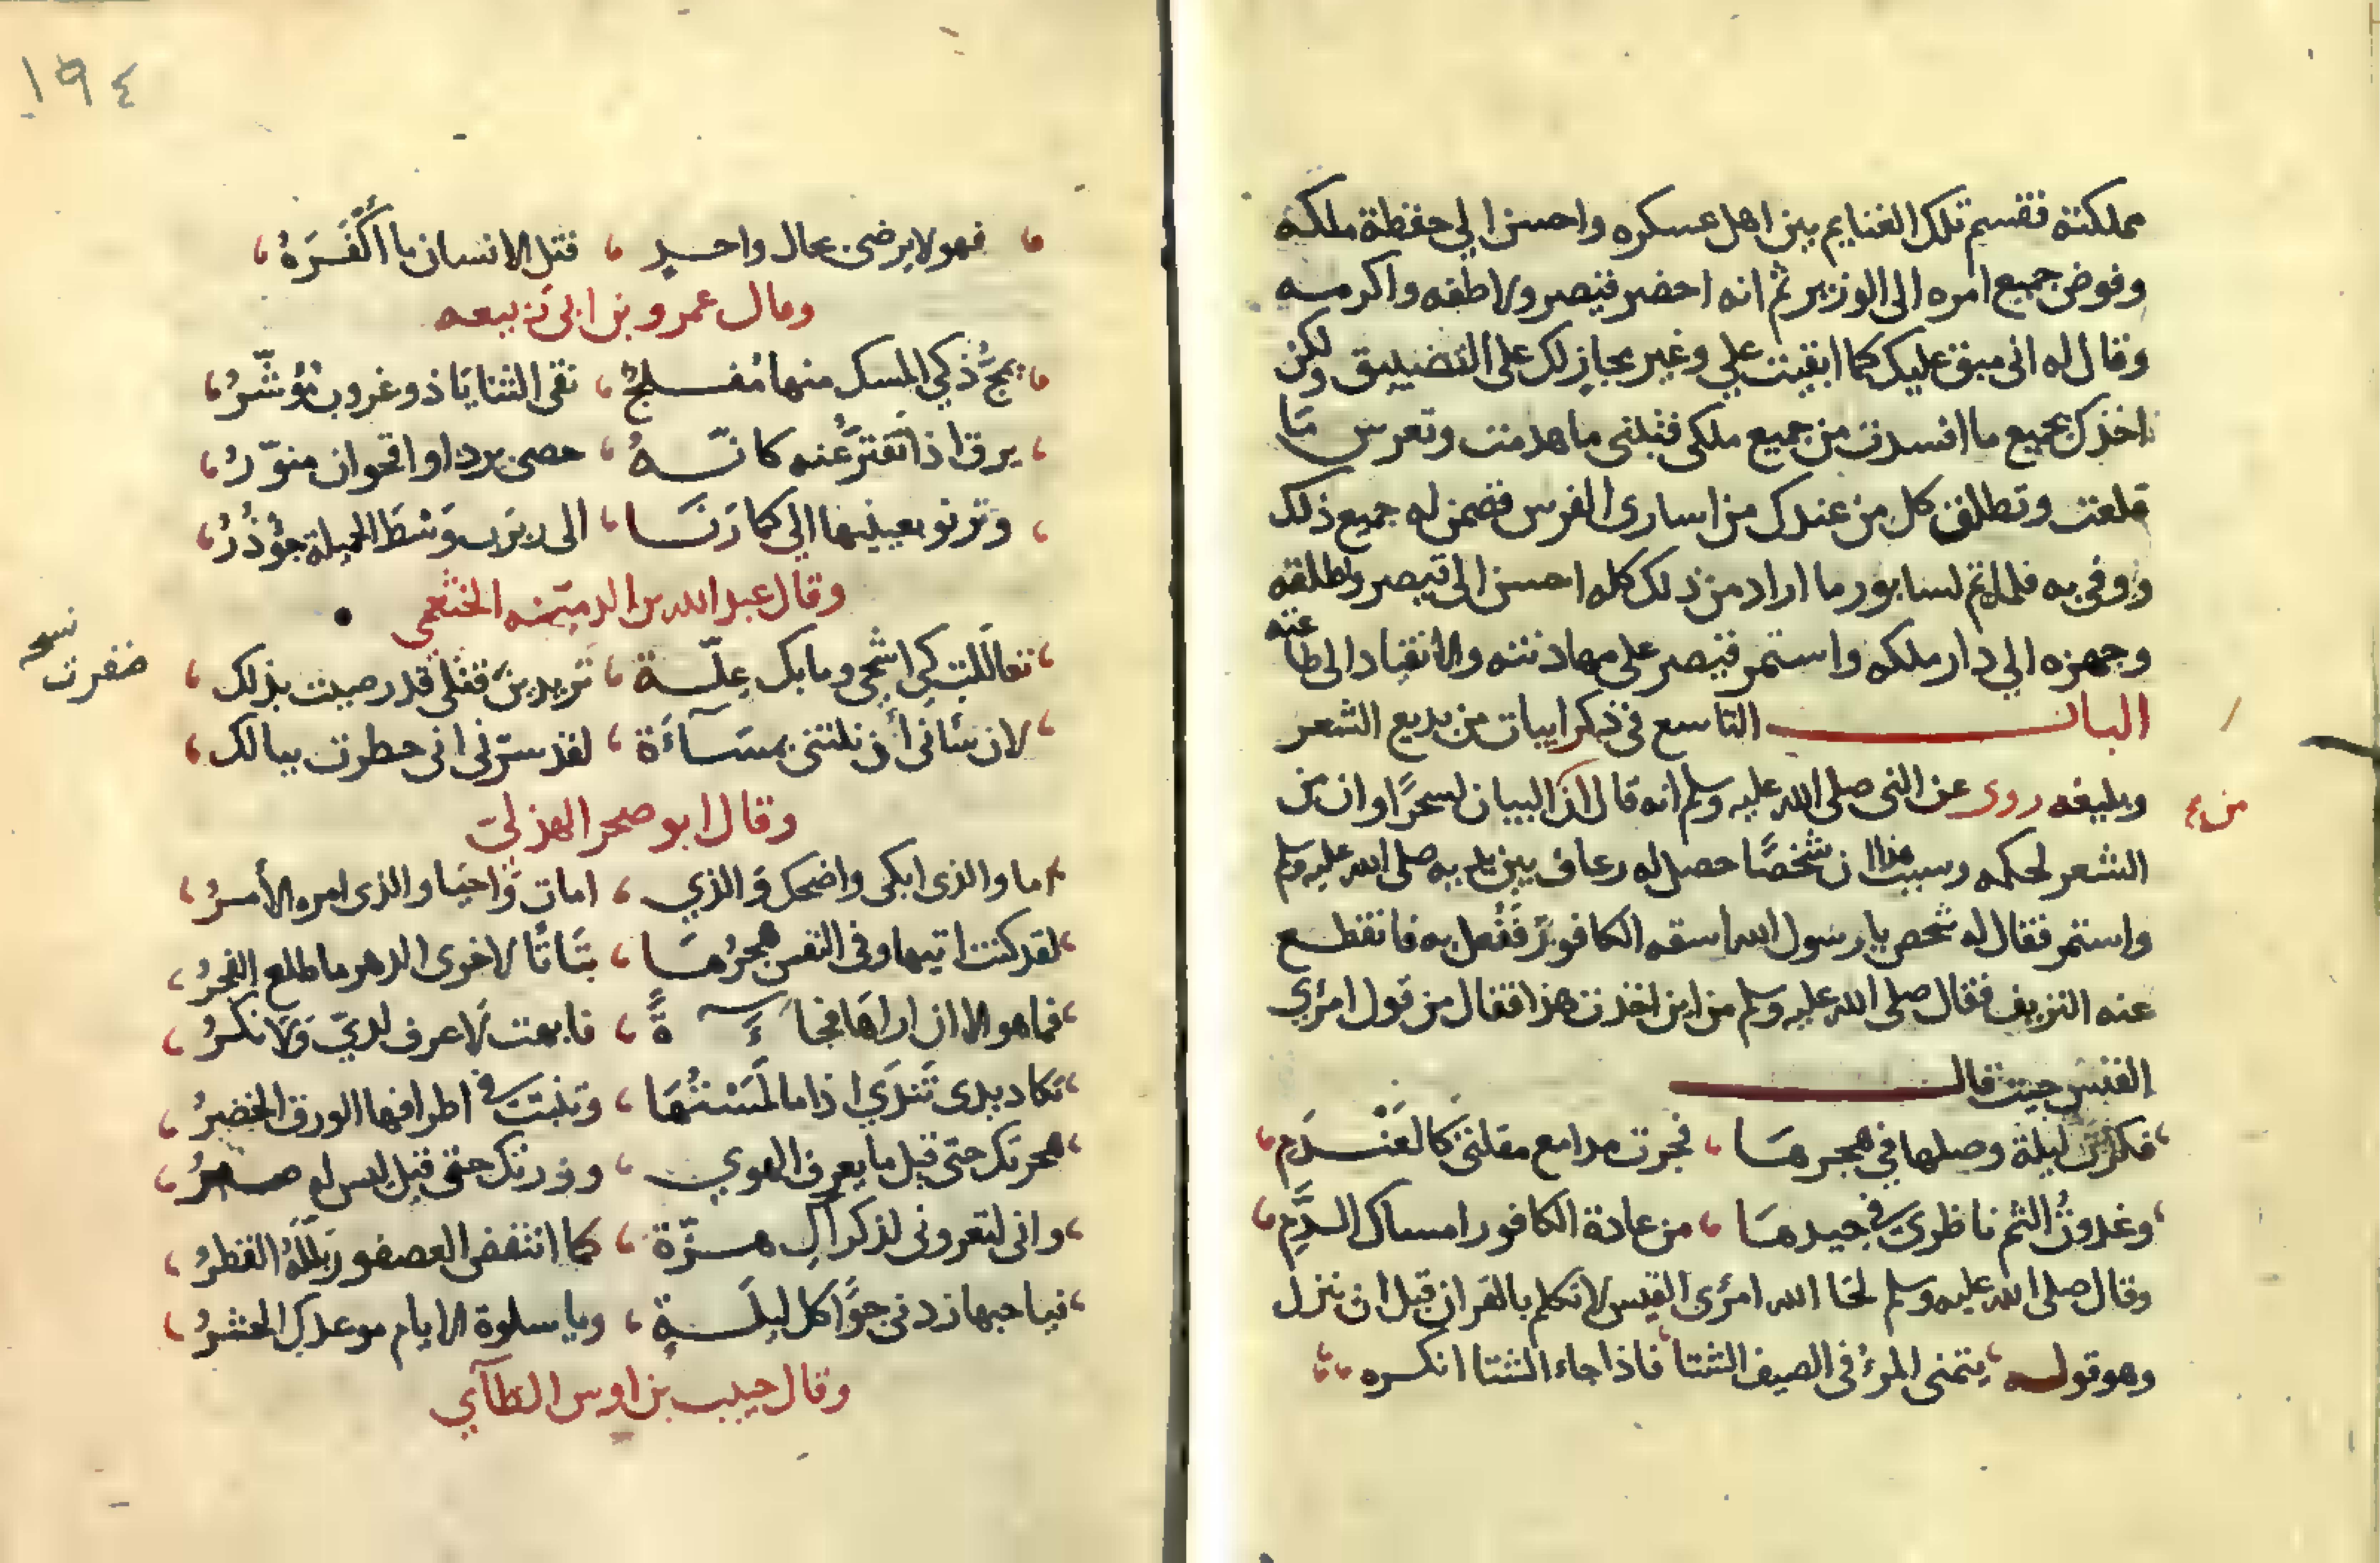 مملكته فقسم تلك الغنايم بين اهل عسكره واحسن الي حفظة ملكه
وفوض جميع امره الى الوزير ثم انه احضر قيصر ولاطفه واكرمه
وقال له اني مبق عليك كما ابقيت علي وغير مجازٍ لك على التضييق ولكن
اخذك بجميع ما افسدت من جميع ملكي فتبني ما هدمت وتغرس ما
قلعت وتطلق كل من عندك من اسارى الفرس فضمن له جميع ذلك
ووفي به فلما تم لسابور ما اراد من ذلك كله احسن الى قيصر واطلقه
وجهزه الي دار ملكه واستمر قيصر على مهادنته والانقياد الى طاعته
الباب التاسع في ذكر ابيات من بديع الشعر
وبليغه روى عن النبي صلى الله عليه وسلم انه قال ان البيان لسحرًا وان من
من ع
الشعر لحكمه وسبب هذا ان شخصًا حصل له رعاف بين يديه صلى الله عليه وسلم
واستمر فقال له شخص يا رسول الله اسقه الكافور فَفُعل به فانقطع
عنه النزيف فقال صلى الله عليه وسلم من اين اخذت هذا فقال من قول امرئ
القيس حيث قال
فكرت ليلة وصلها في هجرها ، فجرت مدامع مقلتي كالعَنْدَمِ
وغدوتُ الثم ناظري في جيدها ، من عادة الكافور امساك الدَّمِ
وقال صلى الله عليه وسلم لحا الله امرئ القيس لا تكلم بالقران قبل ان ينزل
وهو قوله يتمنى المرءُ في الصيف الشتا ، فاذا جاء الشتا انكره
١٩٤
فهو لا يرضى بحال واحدٍ ، قتل الانسان ما اَكْفَرَهُ
وقال عمرو بن ابي ربيعه
يمجُّ ذكي المسك منها مُفلجٌ ، نقي الثنايا ذو غروب مُؤشَّرُ
يرق اذا تفترُّ عنه كانَّهُ ، حصى برد او اقحوان منوّرُ
وترنو بعينيها الي كما رَنَا ، الى ربرب وَسْطَ الخميلة جؤذُرُ
وقال عبد الله بن الدمينه الخثعمي
تعاللت كي اشجى وما بك عِلّة ، تريدين قتلي قد رضيت بذلك
نسخه
ظفرت
لان ساني أن نلتني بمساءَة ، لقد سرّني اني خطرت ببالك
وقال ابو صخر الهذلي
اما والذى ابكى واضحك والذي ، امات وَاحيا والذى امره الأمرُ
لقد كنت اتيها وفي النفس هجرُها ، بتاتًا لاخرى الدهر ما طلع الفجرُ
فما هو الا ان اراها فجاءَةً ، فابهت لا عرف لديّ وَلا نكرُ
تكاد يدى تَندَي اذا ما لَمَسْتُها ، وتنبت في اطرافها الورق الخضرُ
هجرتك حتى قيل ما يعرف الهوي ، وزرتك حتى قيل ليس له صبرُ
واني لتعروني لذكراكِ هزّة ، كما انتفض العصفور بَلَّلَهُ القطرُ
فيا حبها زدني جوًّا كل ليلَةٍ ، ويا سلوة الايام موعدكِ الحشرُ
وقال حبيب بن اوس الطآئي